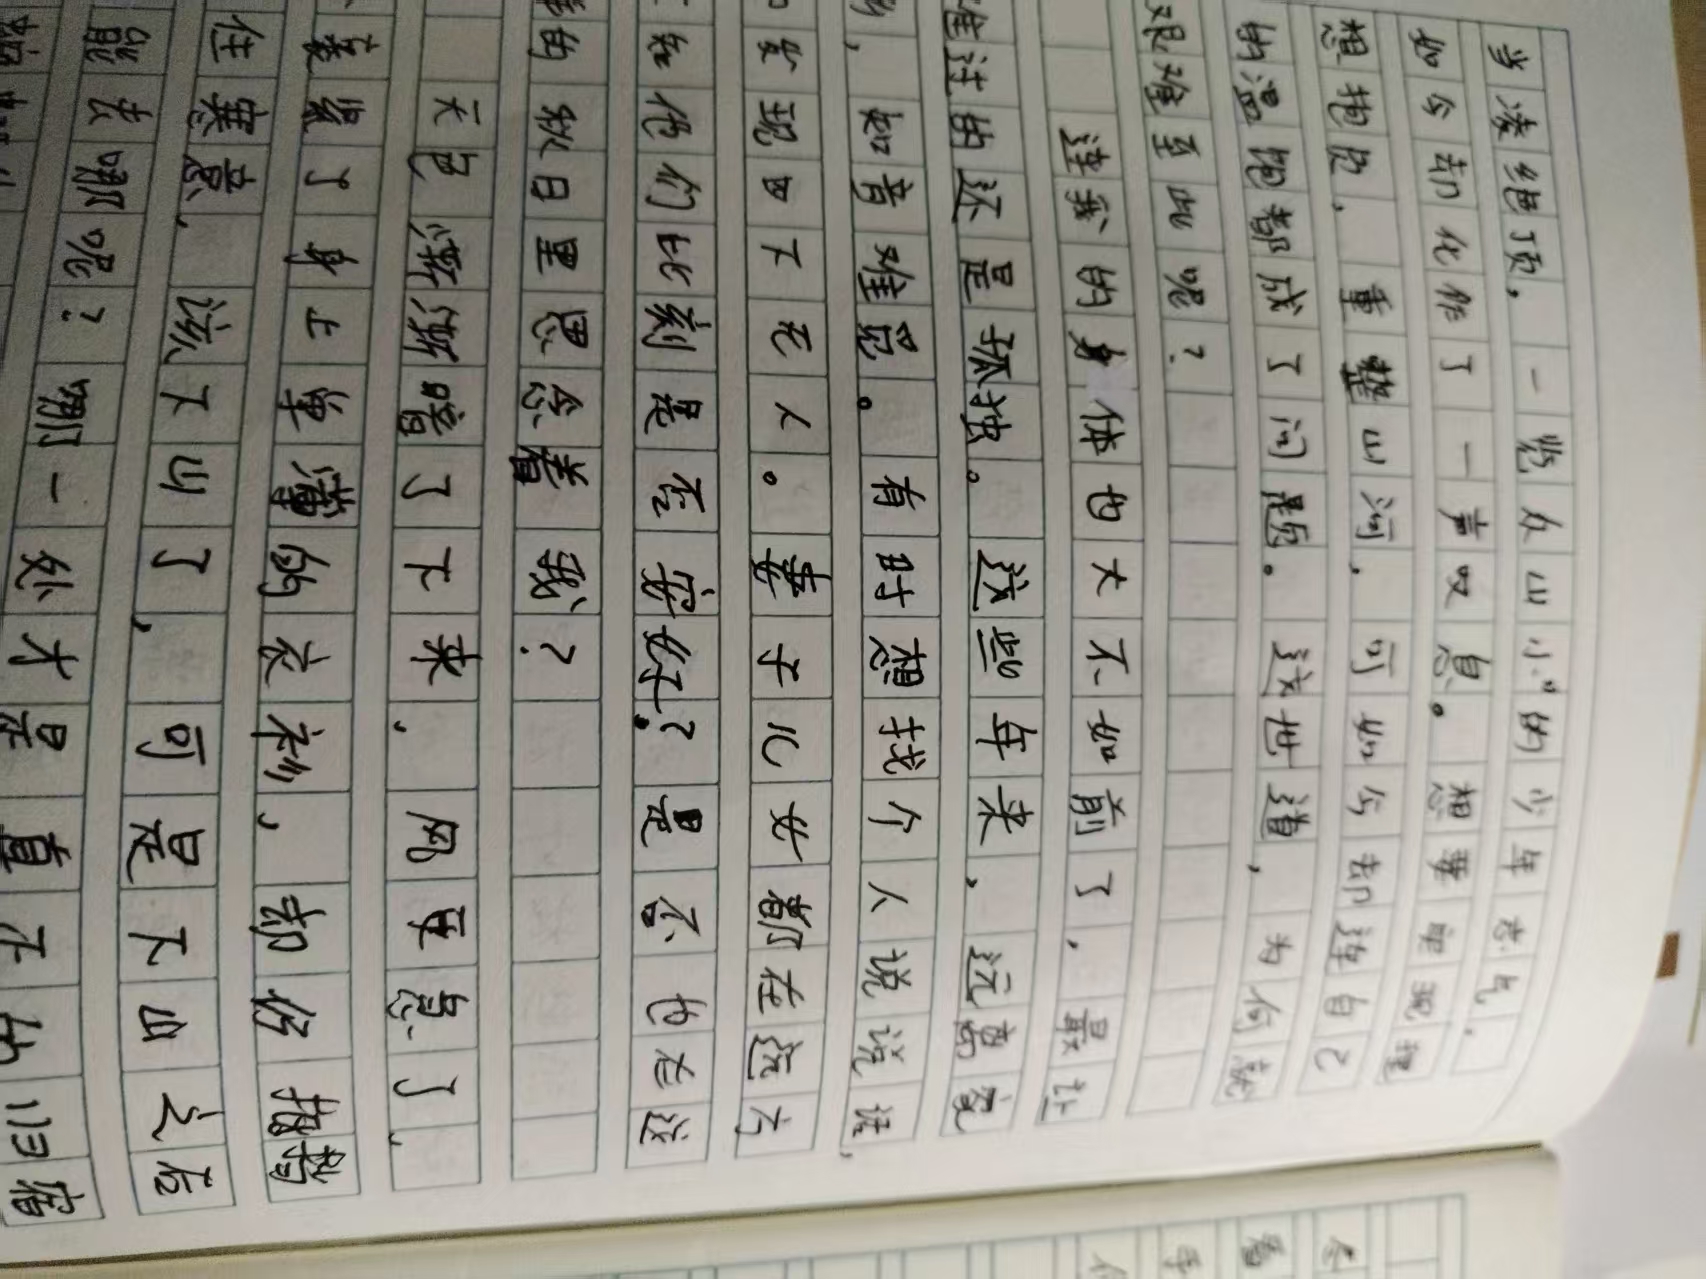 当凌绝顶,一览众山小"的少年志气,
如今却化作了一声叹息。想要实现理
想抱负,重整山河,可如今却连自己
的温饱都成了问题。这世道,为何就
艰难至此呢?
连我的身体也大不如前了,最让
难过的还是孤独。这些年来,远离家
乡,知音难觅。有时想找个人说说话,
发现四下无人。妻子儿女都在远方
知他们此刻是否安好?是否也在这
样的秋日里思念着我?
天已渐渐暗了下来,风更急了,
裹紧了身上单薄的衣衫,却仍抵挡
住寒意。该下山了,可是下山之后
能去哪呢?哪一处才是真正的归宿